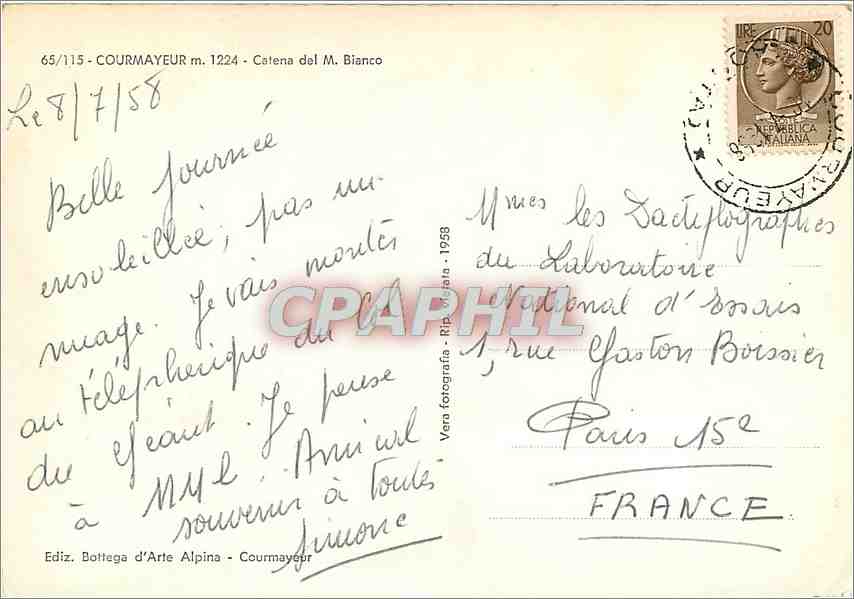 65/115 - COURMAYEUR m. 1224 - Catena del M. Bianco
Le 8/7/58
Belle journée
ensoleillée, pas un
nuage. Je vais monter
au téléphérique du Col
du Géant. Je pense
à
Amical
souvenir à toutes
Simone
Ediz. Bottega d'Arte Alpina - Courmayeur
Vera fotografia - Rip. vietata - 1958
LIRE 20
POSTE
REPVBBLICA
ITALIANA
COURMAYEUR
Mmes les Dactylographes
du Laboratoire
National d'Essais
1, rue Gaston Boissier
Paris 15e
FRANCE
CPAPHIL